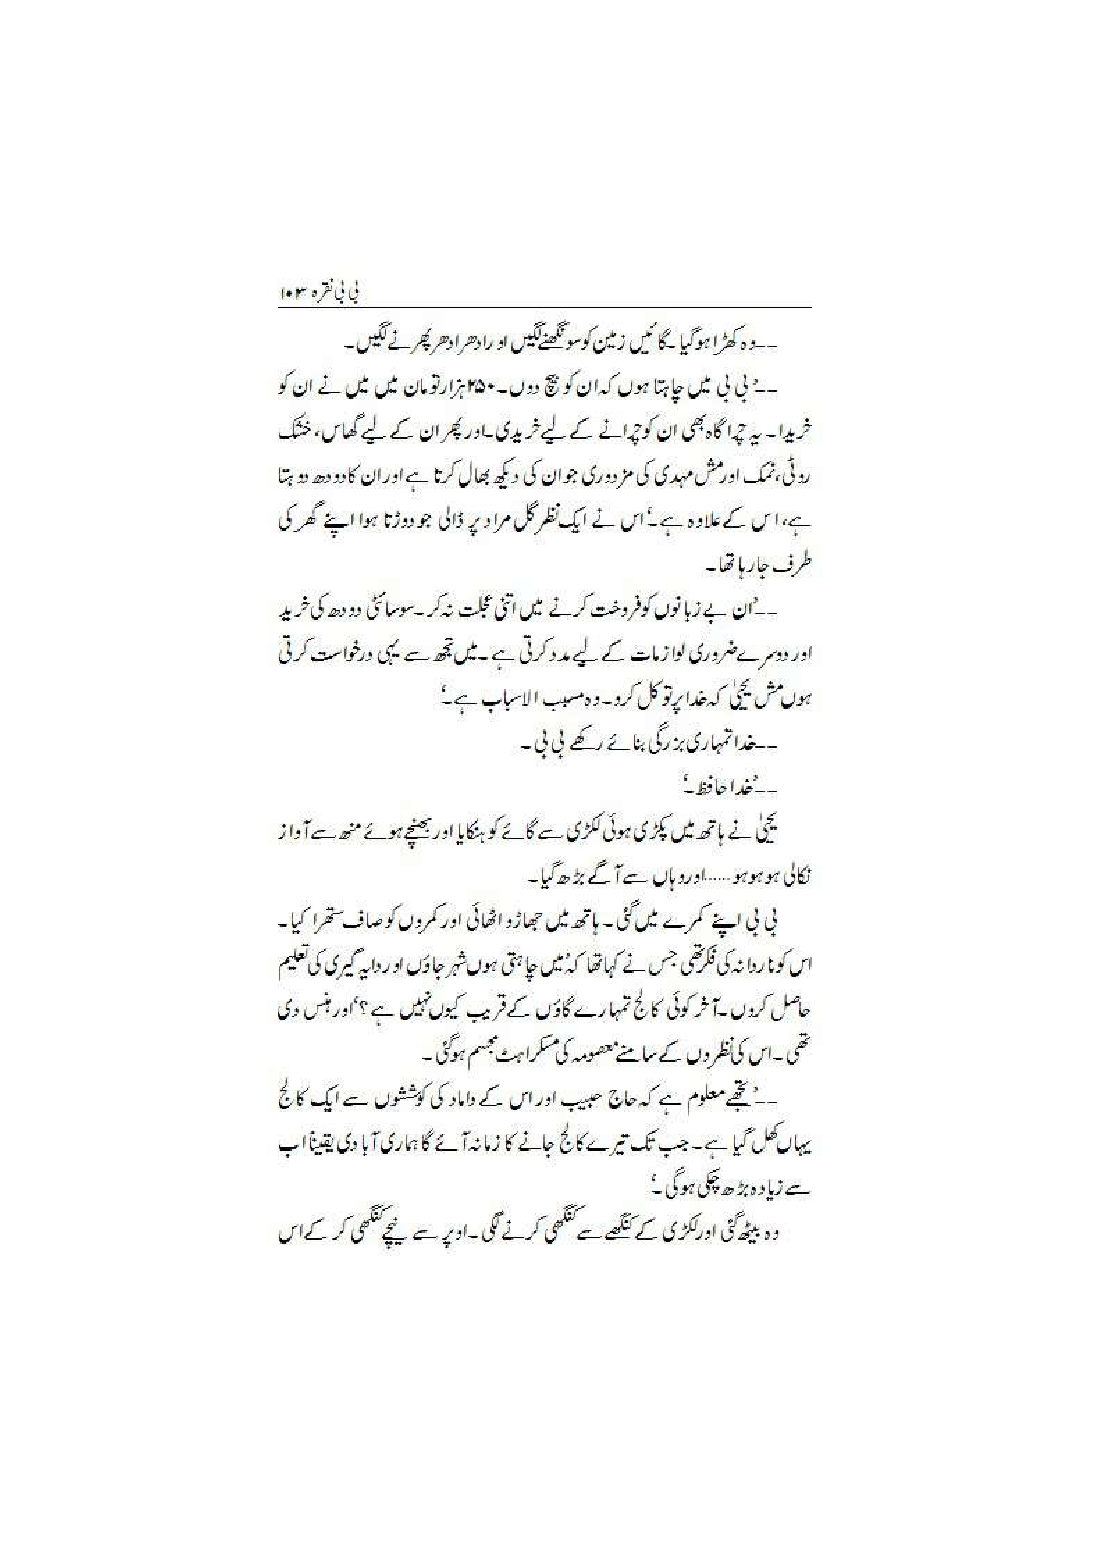 بی بی نقرہ ۱۰۳
--وہ کھڑا ہوگیا۔ گائیں زمین کو سونگھنے لگیں اور ادھر ادھر پھرنے لگیں۔
--’بی بی میں چاہتا ہوں کہ ان کو بیچ دوں۔ ۲۵۰ ہزار تومان میں میں نے ان کو
خریدا۔ یہ چراگاہ بھی ان کو چرانے کے لیے خریدی۔ اور پھر ان کے لیے گھاس، خشک
روٹی، نمک اور مش مہدی کی مزدوری جو ان کی دیکھ بھال کرتا ہے اور ان کا دودھ دوہتا
ہے، اس کے علاوہ ہے۔‘ اس نے ایک نظر گل مراد پر ڈالی جو دوڑتا ہوا اپنے گھر کی
طرف جارہا تھا۔
--’ان بے زبانوں کو فروخت کرنے میں اتنی عجلت نہ کر۔ سوسائٹی دودھ کی خرید
اور دوسرے ضروری لوازمات کے لیے مدد کرتی ہے۔ میں تجھ سے یہی درخواست کرتی
ہوں مش یحییٰ کہ خدا پر توکل کرو۔ وہ مسبب الاسباب ہے۔‘
--خدا تمہاری بزرگی بنائے رکھے بی بی۔
--’خدا حافظ۔‘
یحییٰ نے ہاتھ میں پکڑی ہوئی لکڑی سے گائے کو ہنکایا اور بھنچے ہوئے منھ سے آواز
نکالی ہو ہو ہو......اور وہاں سے آگے بڑھ گیا۔
بی بی اپنے کمرے میں گئی۔ ہاتھ میں جھاڑو اٹھائی اور کمروں کو صاف ستھرا کیا۔
اس کو ناردانہ کی فکر تھی جس نے کہا تھا کہ ’میں چاہتی ہوں شہر جاؤں اور دایہ گیری کی تعلیم
حاصل کروں۔ آخر کوئی کالج تمہارے گاؤں کے قریب کیوں نہیں ہے؟‘ اور ہنس دی
تھی۔ اس کی نظروں کے سامنے معصومہ کی مسکراہٹ مجسم ہوگئی۔
--’تجھے معلوم ہے کہ حاج حبیب اور اس کے داماد کی کوششوں سے ایک کالج
یہاں کھل گیا ہے۔ جب تک تیرے کالج جانے کا زمانہ آئے گا ہماری آبادی یقیناً اب
سے زیادہ بڑھ چکی ہوگی۔‘
وہ بیٹھ گئی اور لکڑی کے کنگھے سے کنگھی کرنے لگی۔ اوپر سے نیچے کنگھی کر کے اس